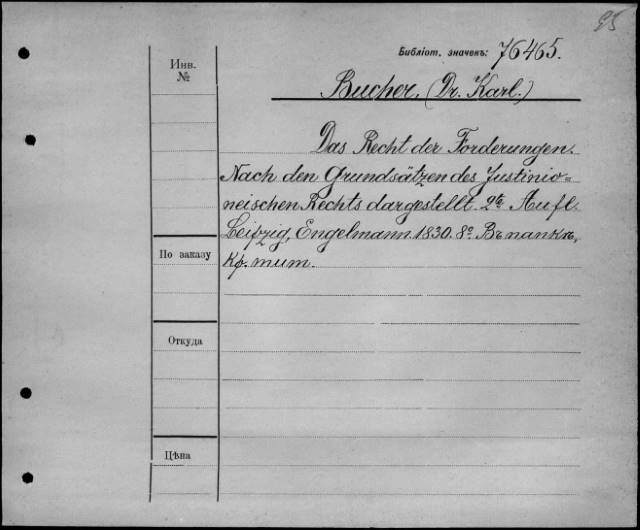 95
Библіот. значекъ: 76465.
Инв.
№
Bucher, (Dr. Karl.)
Das Recht der Forderungen.
Nach den Grundsätzen des Justinio-
neischen Rechts dargestellt. 2te Aufl.
Leipzig, Engelmann. 1830. 8º. Въ папкѣ,
По заказу
Кр. тит.
Откуда
Цѣна